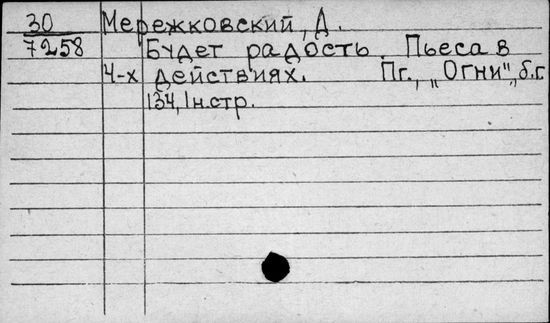 30 Мережковский, Д.
7258 Будет радость. Пьеса в
4-х действиях. Пг., „Огни", б.г.
134, 1н.стр.